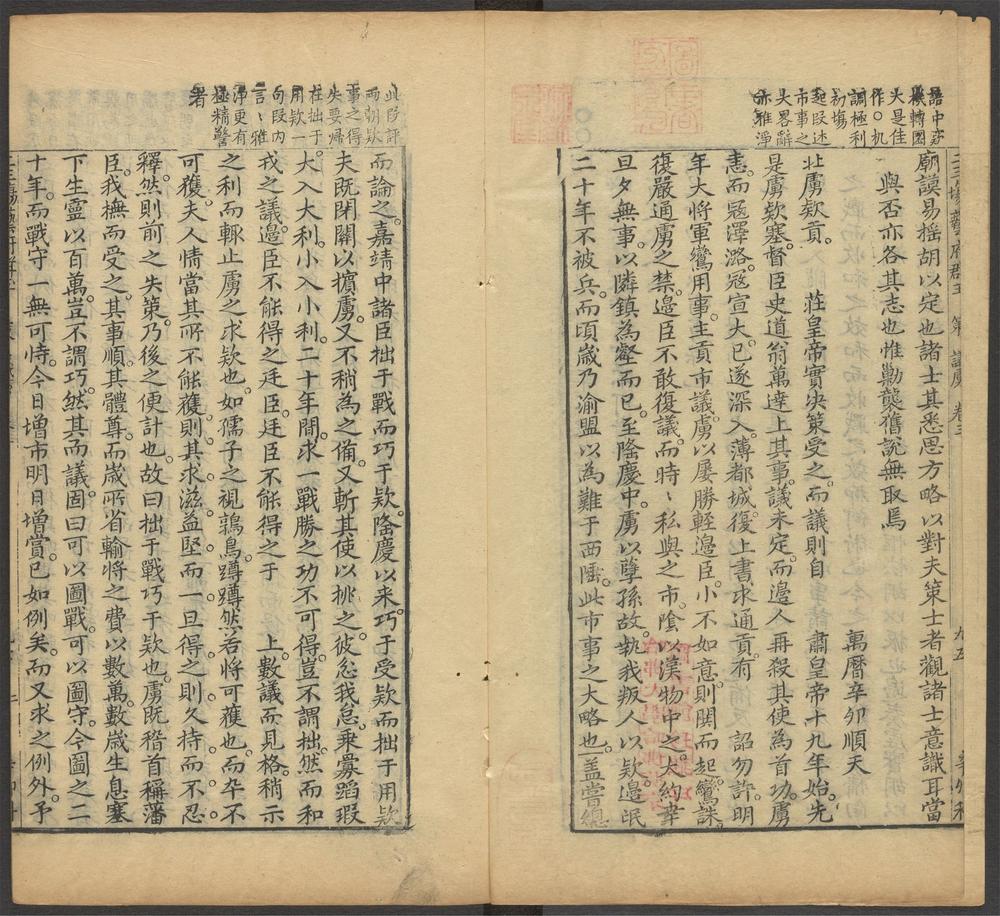 語中亦
機轉圜
大是佳
作〇机
調極利
初場
廟謨易搖胡以定也諸士其悉思方略以對夫策士者觀諸士意識耳當
與否亦各其志也惟勦襲舊說無取焉
萬曆辛卯順天
起段述
市事之
大畧辭
亦雅淨
北虜欵貢 莊皇帝實決策受之而議則自 肅皇帝十九年始先
是虜欵塞督臣史道翁萬達上其事議未定而邊人再殺其使為首功虜
恚而冦澤潞冦宣大已遂深入薄都城復上書求通貢有 詔勿許明
年大將軍鸞用事主貢市議虜以屡勝輕邊臣小不如意則鬨而起鸞誅
復嚴通虜之禁邊臣不敢復議而時〻私與之市隂以漢物中之大約幸
旦夕無事以隣鎮為壑而已至隆慶中虜以孽孫故執我叛人以欵邊氓
二十年不被兵而頃歲乃渝盟以為難于西陲此市事之大略也盖嘗總
此段評
兩朝欵
事之得
失要歸
在拙于
用欵一
句段内
言〻雅
淨更有
極精警
者
而論之嘉靖中諸臣拙于戰而巧于欵隆慶以来巧于受欵而拙于用欵
夫既閉關以擯虜又不稍為之備又斬其使以挑之彼忿我怠乘釁蹈瑕
大入大利小入小利二十年間求一戰勝之功不可得豈不謂拙然而和
戎之議邊臣不能得之廷臣廷臣不能得之于 上數議而見格稍示
之利而輒止虜之求欵也如孺子之視鶉鳥蹲蹲然若將可獲也而卒不
可獲夫人情當其所不能獲則其求滋益堅而一旦得之則久持而不忍
釋然則前之失策乃後之便計也故曰拙于戰巧于欵也虜既稽首稱藩
臣我撫而受之其事順其體尊而歲所省輸將之費以數萬數歲生息塞
下生靈以百萬豈不謂巧然其而議固曰可以圖戰可以圖守今圖之二
十年而戰守一無可恃今日增市明日增賞已如例矣而又求之例外予